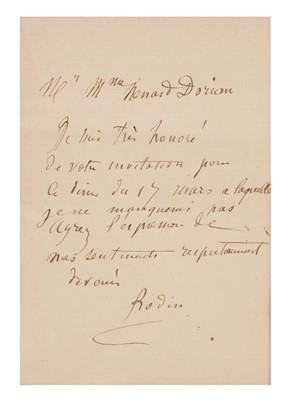 Mr Mme Menard Dorian
Je suis très honoré
de votre invitation pour
le diner du 17 mars a laquelle
je ne manquerai pas
Agréez l'expression de
mes sentiments respectueusement
devoués
Rodin